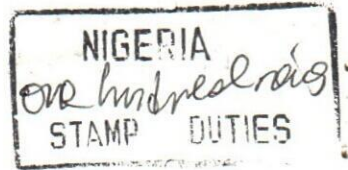 NIGERIA
one hundred naira
STAMP DUTIES